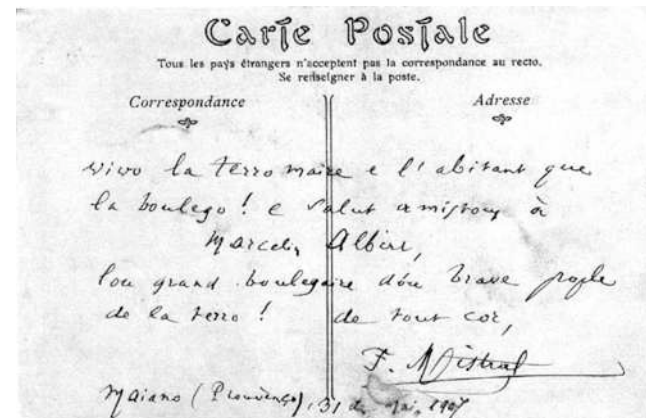 Carte Postale
Tous les pays étrangers n'acceptent pas la correspondance au recto.
Se renseigner à la poste.
Correspondance
Adresse
vivo la terro maire e l'abitant que
la boulego! e salut amistous à
Marcelin Albert,
lou grand boulegaire dóu brave pople
de la terro! de tout cor,
F. Mistral
Maiano (Prouvenço), 31 de mai, 1907